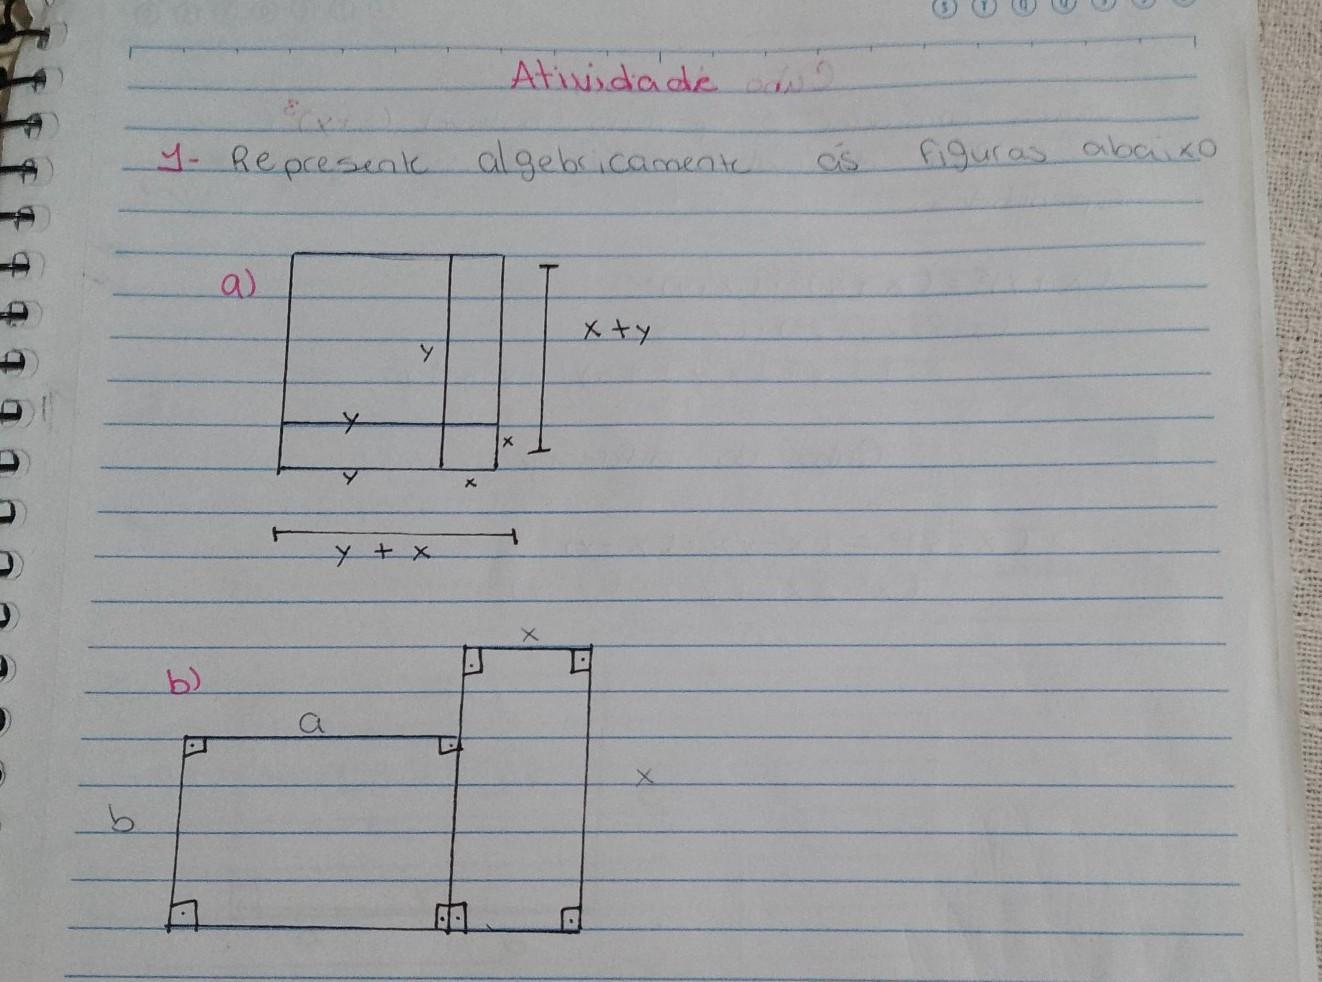 Atividade
1- Represente algebricamente as figuras abaixo
a)
x + y
y
y
x
y
x
y + x
x
b)
a
x
b